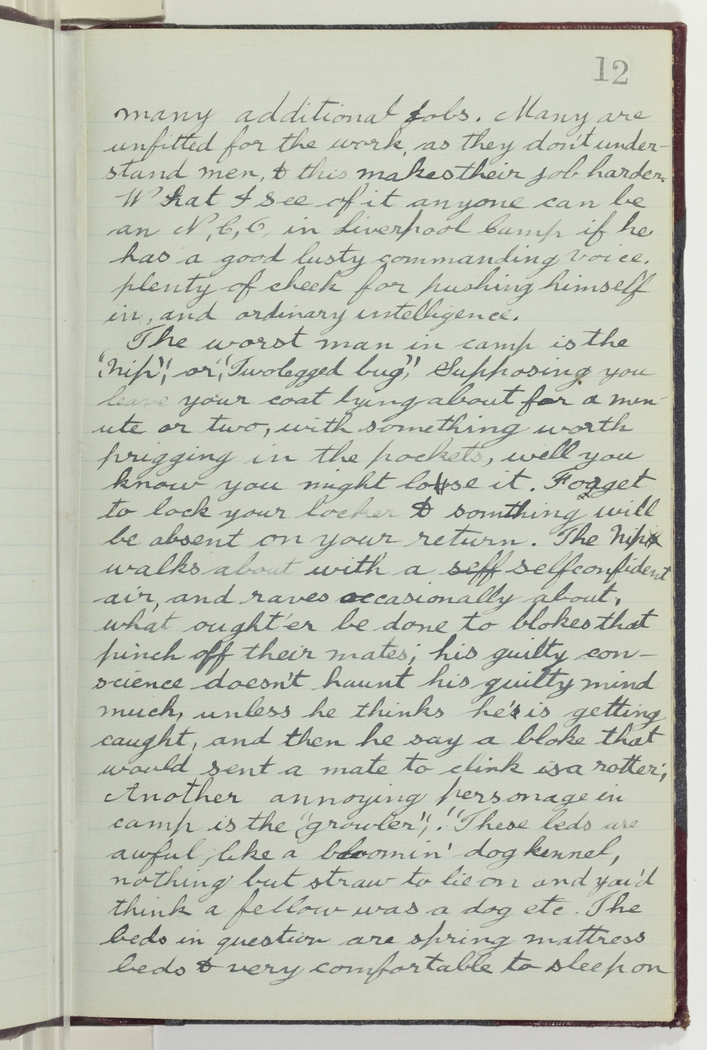 12
many additional jobs. Many are
unfitted for the work, as they don't under-
stand men, & this makes their job harder.
What I see of it anyone can be
an N,C,O, in Liverpool Camp if he
has a good lusty commanding voice,
plenty of cheek for pushing himself
in, and ordinary intelligence.
The worst man in camp is the
"Nip", or, "Twolegged bug", Supposing you
leave your coat lying about for a min-
ute or two, with something worth
prigging in the pockets, well you
know you might lose it. Forget
to lock your locker & somthing will
be absent on your return. The Nip
walks about with a seff selfconfident
air, and raves occasionally about,
what ought'er be done to blokes that
pinch off their mates; his guilty con-
science doesn't haunt his guilty mind
much, unless he thinks he's is getting
caught, and then he say a bloke that
would sent a mate to clink is a rotter;
Another annoying personage in
camp is the "growler", "These beds are
awful, like a bloomin' dog kennel,
nothing but straw to lie on and you'd
think a fellow was a dog etc. The
beds in question are spring mattress
beds & very comfortable to sleep on